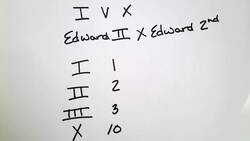 I V X
Edward II X Edward 2nd
I 1
II 2
III 3
X 10